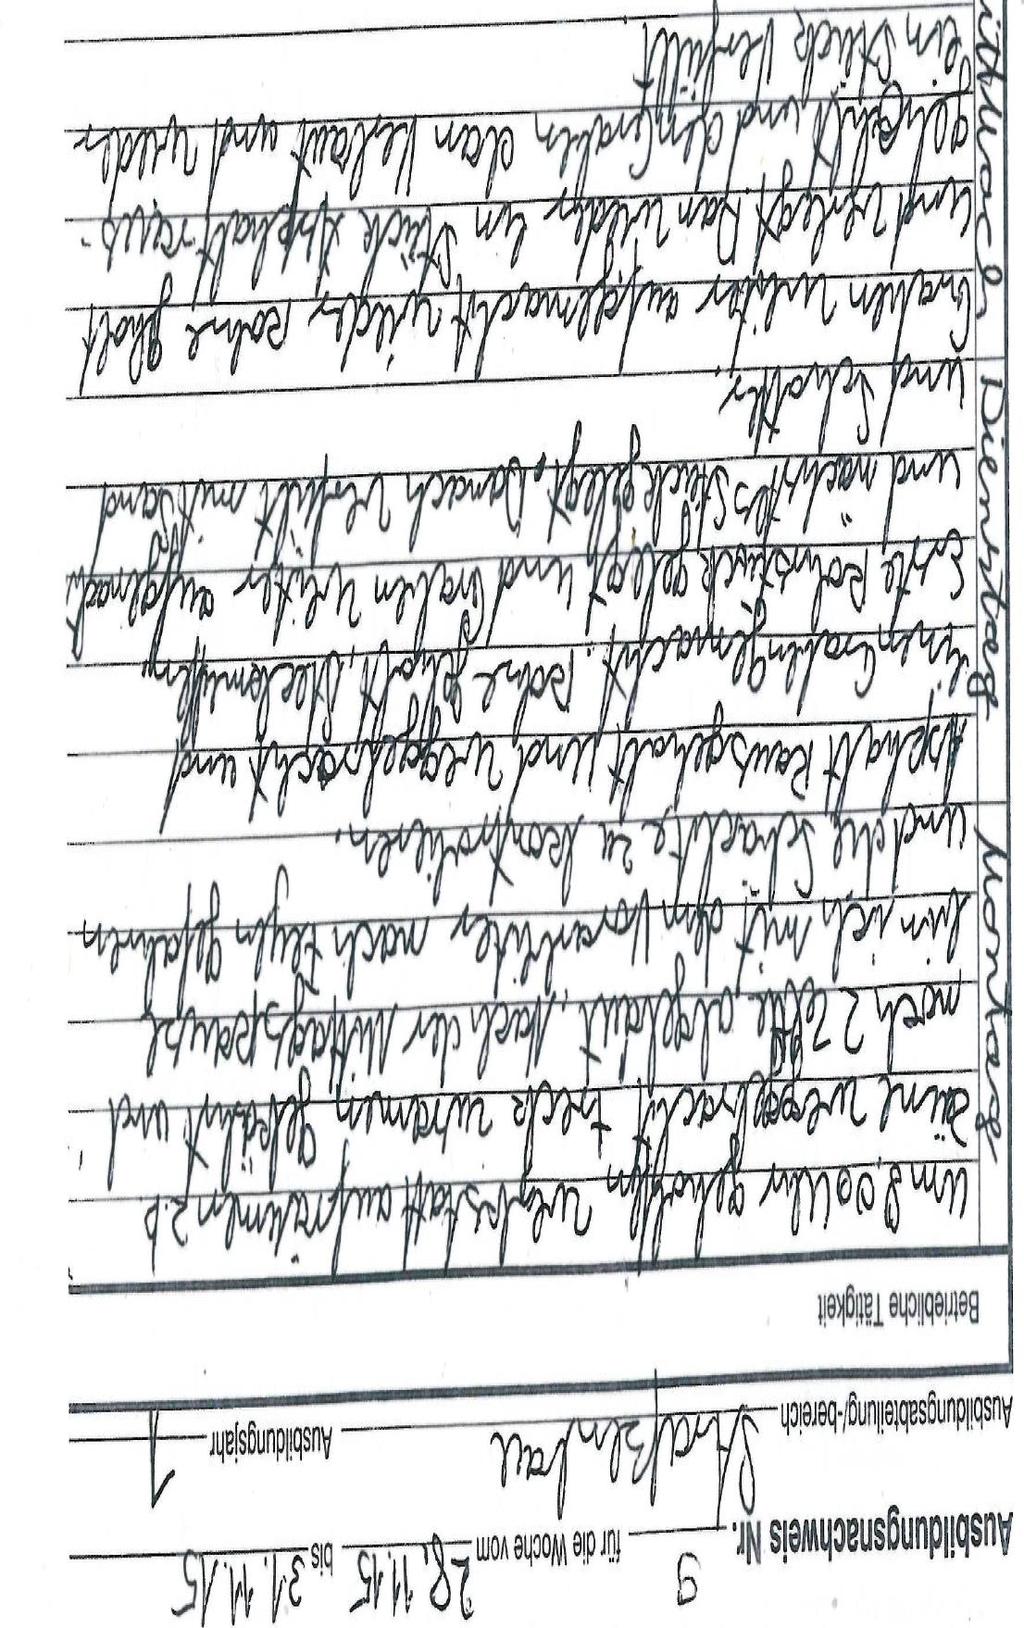 Ausbildungsnachweis Nr. 9 für die Woche vom 28.11.15 bis 31.11.15
Ausbildungsabteilung/-bereich Straßenbau Ausbildungsjahr 1
Betriebliche Tätigkeit
Montag
um 8.00 Uhr geholfen Werkstatt aufräumen z.b.
Zäune weggebracht, Fleck zuramen gekährt und
noch 2 Zelte abgebaut. Nach der Mittagspause
bin ich mit dem Vorarbiter nach gefahren
und die Schächte zu kontrolieren.
Dienstag
Asphalt Rausgeholt und weggebracht und
einen Graben gemacht. Rohre geholt,
Erste Rohrstück gelegt und Graben weiter aufgemacht
und nächstes Stück gelegt. Danach verfüllt mit Sand
und Schotter.
Mittwoch
Graben weiter aufgemacht wieder Rohre gholt
und verlegt. Dan wieder ein Stück Asphalt raus-
und den Graben dan und wieder
ein Stück Verfüllt